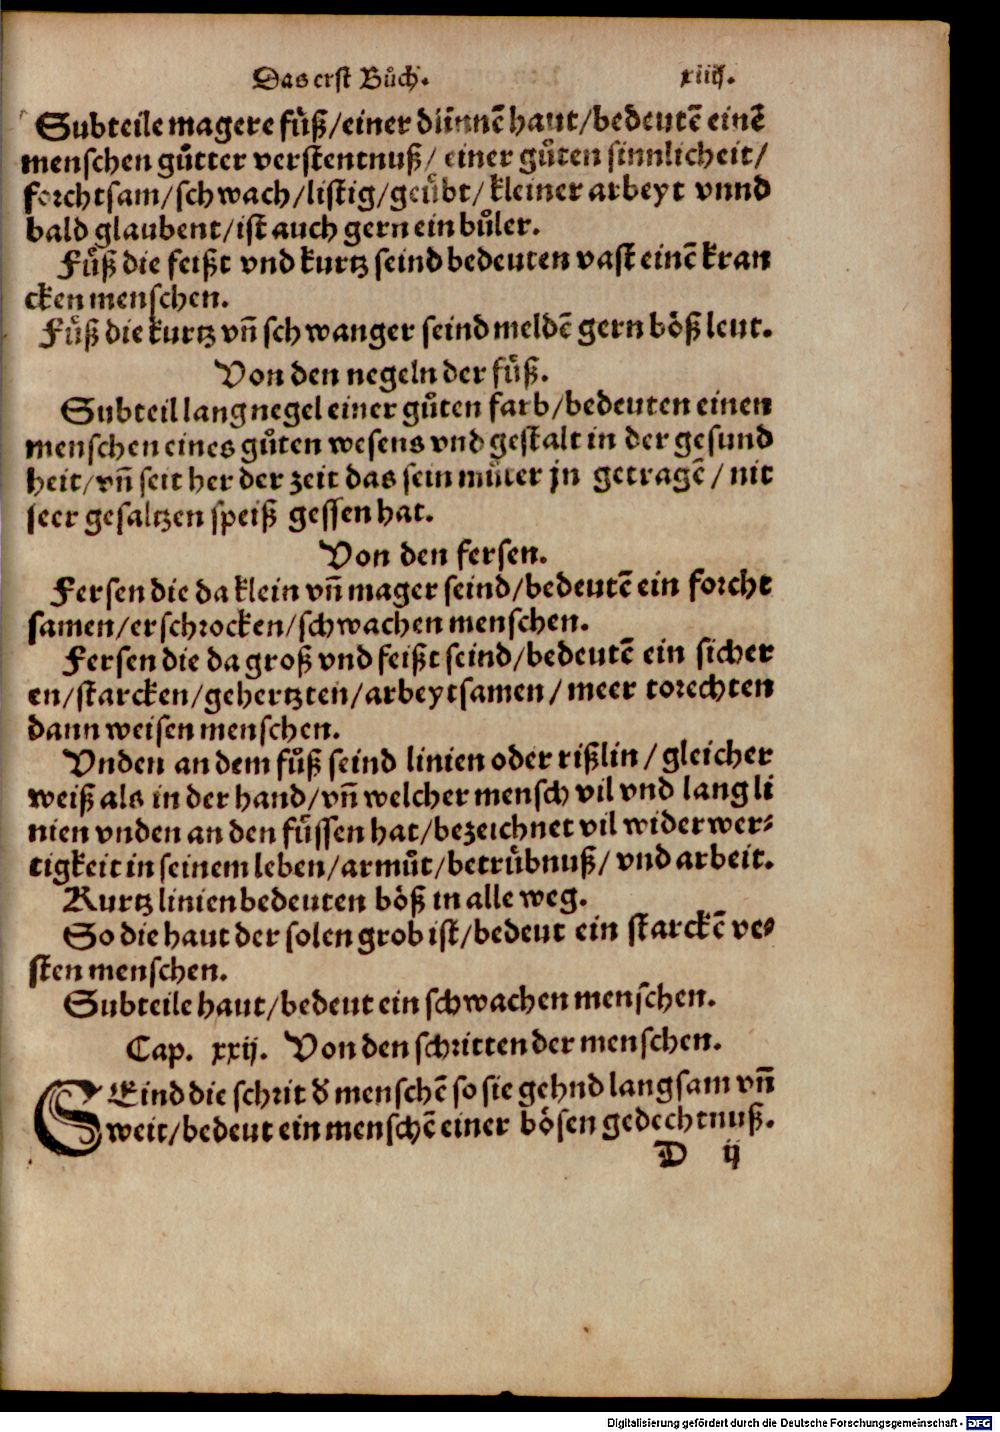 Das erst Bůch. xiiij.
Subteile magere fůß/einer dünnē haut/bedeutē einē
menschen gůtter verstentnuß/ einer gůten sinnlicheit/
forchtsam/schwach/listig/geübt/ kleiner arbeyt vnnd
bald glaubent/ist auch gern ein bůler.
Fůß die feißt vnd kurtz seind bedeuten vast einē kran
cken menschen.
Fůß die kurtz vñ schwanger seind meldē gern böß leut.
Von den negeln der fůß.
Subteil lang negel einer gůten farb/bedeuten einen
menschen eines gůten wesens vnd gestalt in der gesund
heit/vñ seit her der zeit das sein můter jn getragē/ nit
seer gesaltzen speiß gessen hat.
Von den fersen.
Fersen die da klein vñ mager seind/bedeutē ein forcht
samen/erschrocken/schwachen menschen.
Fersen die da groß vnd feißt seind/bedeutē ein sicher
en/starcken/gehertzten/arbeytsamen/meer torechten
dann weisen menschen.
Vnden an dem fůß seind linien oder rißlin/gleicher
weiß als in der hand/vñ welcher mensch vil vnd lang li
nien vnden an den fůssen hat/bezeichnet vil widerwer⸗
tigkeit in seinem leben/armůt/betrůbnuß/ vnd arbeit.
Kurtz linien bedeuten böß in alle weg.
So die haut der solen grob ist/bedeut ein starckē ve⸗
sten menschen.
Subteile haut/bedeut ein schwachen menschen.
Cap. xxij. Von den schritten der menschen.
SEind die schrit d̕ menschē so sie gehnd langsam vñ
weit/bedeut ein menschē einer bösen gedechtnuß.
D ij
Digitalisierung gefördert durch die Deutsche Forschungsgemeinschaft - DFG